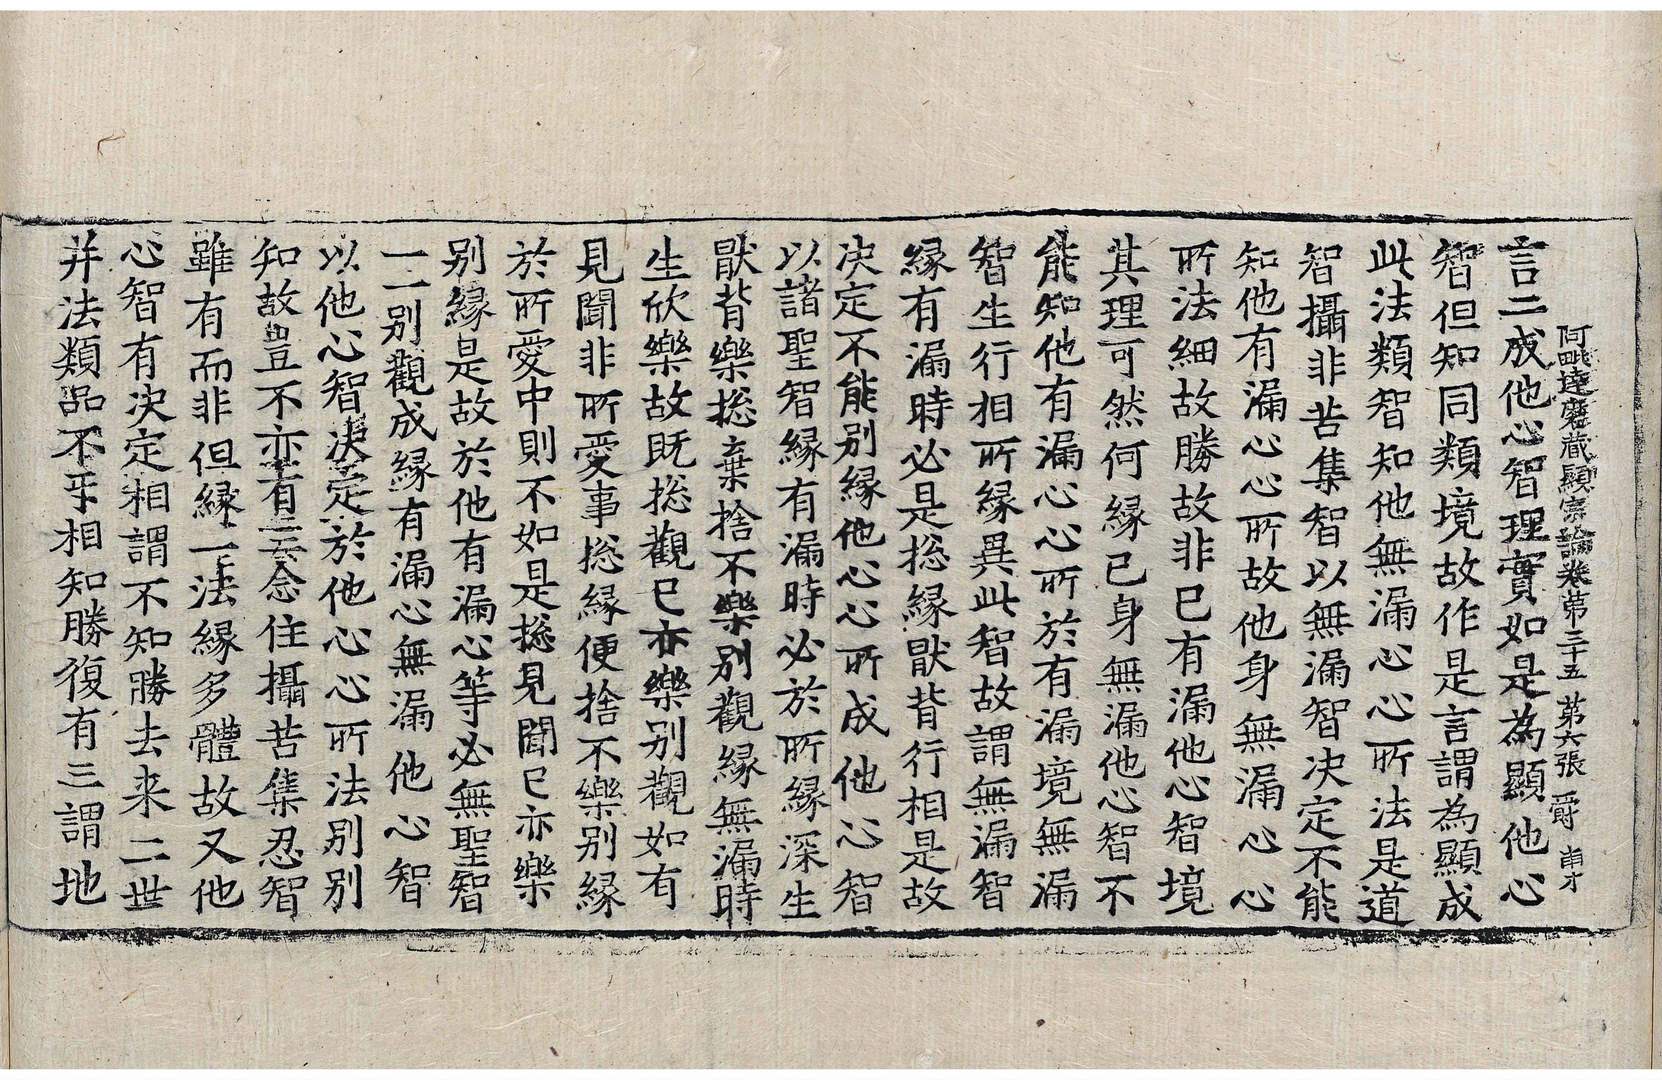 阿毗達磨藏顯宗論卷第三十五 第六張 爵
言二成他心智理實如是為顯他心
智但知同類境故作是言謂為顯成
此法類智知他無漏心心所法是道
智攝非苦集智以無漏智决定不能
知他有漏心心所故他身無漏心心
所法細故勝故非已有漏他心智境
其理可然何縁已身無漏他心智不
能知他有漏心心所於有漏境無漏
智生行相所縁異此智故謂無漏智
縁有漏時必是揔縁猒背行相是故
决定不能別縁他心心所成他心智
以諸聖智縁有漏時必於所縁深生
猒背樂揔棄捨不樂別觀縁無漏時
生欣樂故既揔觀已亦樂別觀如有
見聞非所愛事揔縁便捨不樂別縁
於所愛中則不如是揔見聞已亦樂
別縁是故於他有漏心等必無聖智
一一別觀成縁有漏心無漏他心智
以他心智决定於他心心所法別別
知故豈不亦有三念住攝苦集忍智
雖有而非但縁一法縁多體故又他
心智有决定相謂不知勝去来二世
并法類品不互相知勝復有三謂地